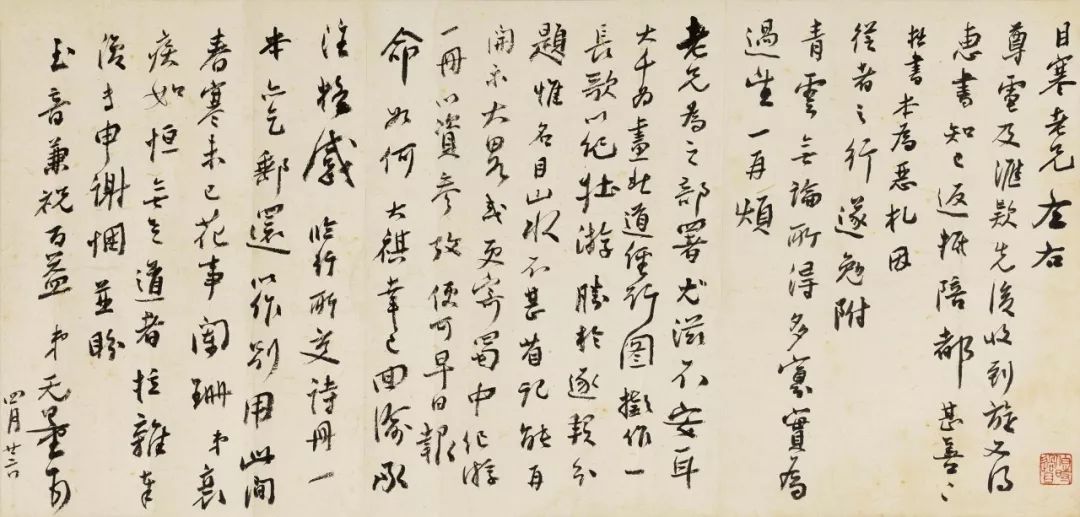 目寒老兄左右
尊電及滙欵先後收到旋又得
惠書知已返掫陪都甚善甚善
拙書本為惡札因
從者之行遂勉附
青雲無論所得多寡實為
過望一再煩
老兄為之部署尤滋不安耳
大千為畫北道經行圖擬作一
長歌以紀壯游勝於逐幀分
題惟名目山水不甚省記能再
開示大畧或更寄蜀中紀游
一冊以資參攷便可早日報
命如何大祺幸已回渝承
注極感臨行所交詩冊一
本亦乞郵還以作別用此間
春寒未已花事闌珊弟衰
疾如恒無足道者拉雜奉
復专申謝悃並盼
玉音兼祝百益弟无量頓
四月廿六日